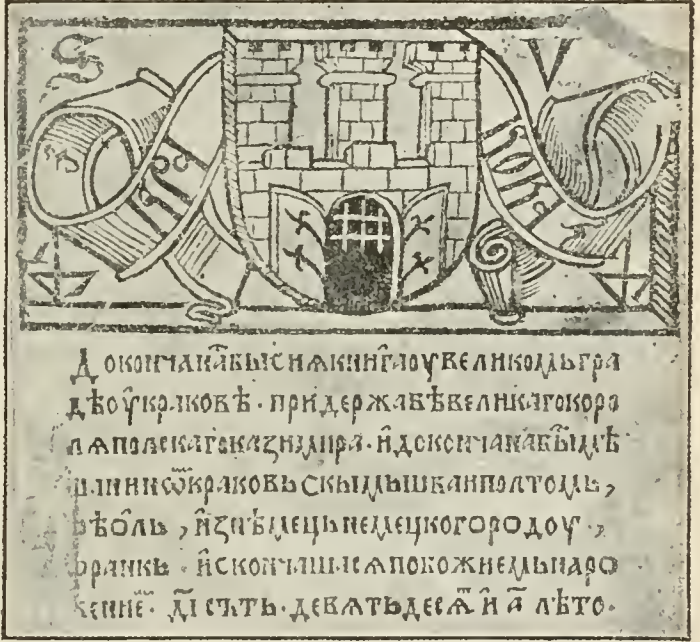 S V
Докончана быс сиѧ книга оу великомь гра
дѣ оу краковѣ · при державѣ великаго коро
лѧ полскаго казимира · и докончана бы мѣ
щанинѡⷨ краковьскымь шваиполтомь,
фѣоль, из нѣмець немецкого родоу,
франкь · и скончашасѧ по божиемь наро
жениеⷨ · д҃і сътъ · девѧтьдесѧⷮ и а҃ лѣто ·